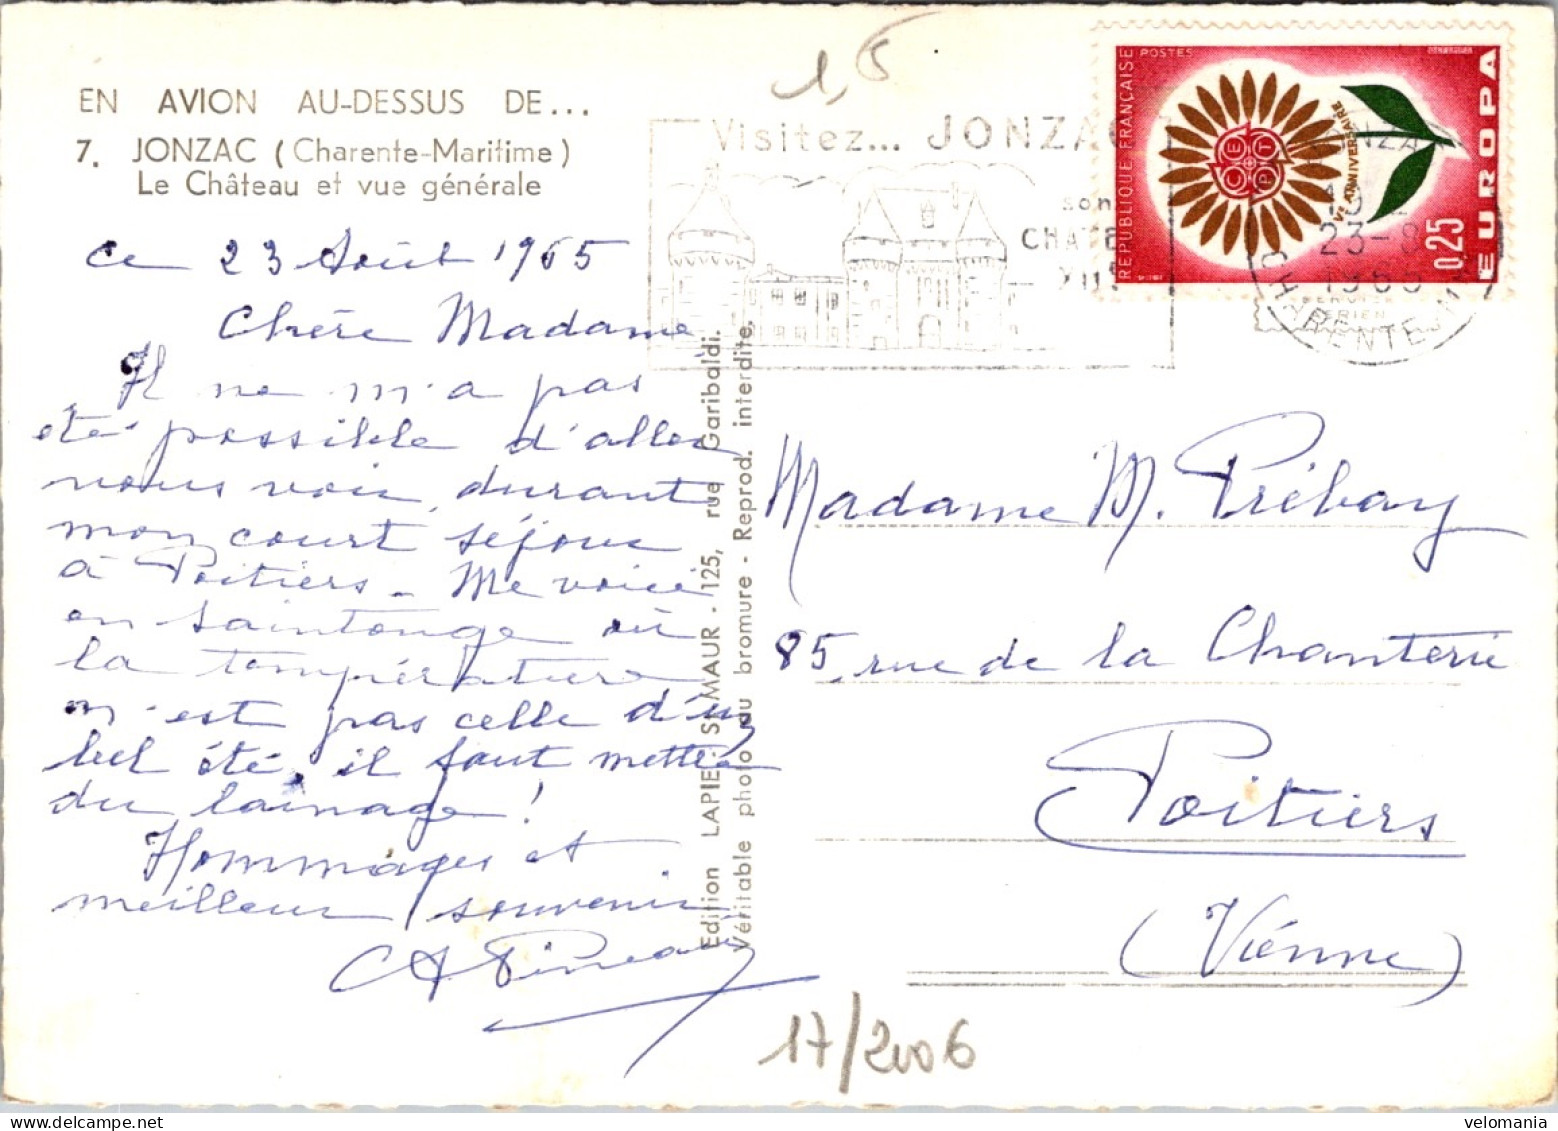 EN AVION AU-DESSUS DE...
7. JONZAC (Charente-Maritime)
Le Château et vue générale
ce 23 Août 1965
Chère Madame
Il ne m'a pas
été possible d'aller
vous voir durant
mon court séjour
à Poitiers - Me voici
en Saintonge où
la température
n'est pas celle d'un
bel été, il faut mettre
du lainage !
Hommages et
meilleur souvenir
Pineau
Edition LAPIE. St-MAUR - 125, rue Garibaldi.
Véritable photo au bromure - Reprod. interdite.
1,5
Visitez... JONZAC
son
CHATE
XII
REPUBLIQUE FRANÇAISE
POSTES
VE ANNIVERSAIRE
0,25
EUROPA
23-8
1965
CHARENTE
Madame M. Prébay
85, rue de la Chanterie
Poitiers
(Viénne)
17/2006
velomania